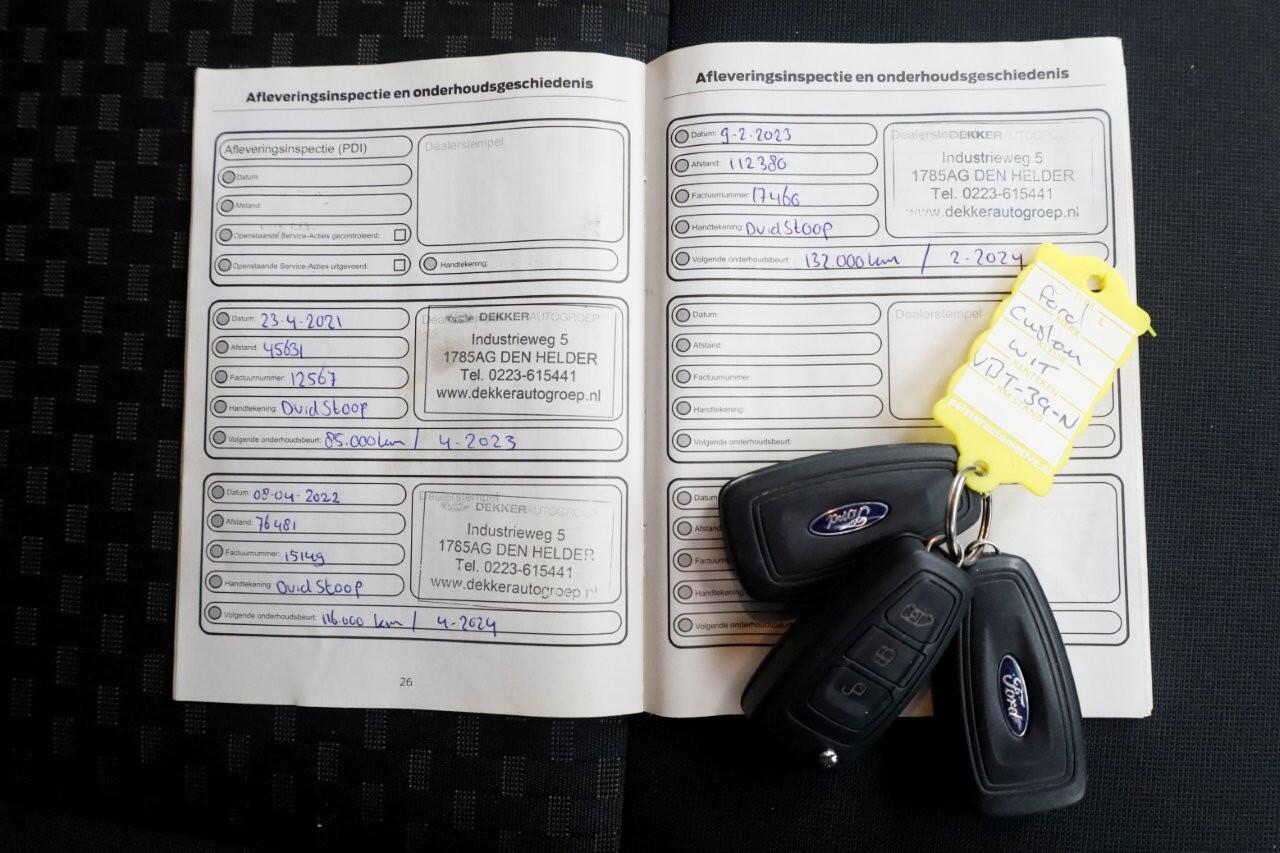 Afleveringsinspectie en onderhoudsgeschiedenis
Afleveringsinspectie (PDI)
Dealerstempel
Datum:
Afstand:
Openstaande Service-Acties gecontroleerd:
Openstaande Service-Acties uitgevoerd:
Handtekening:
Datum: 23-4-2021
Afstand: 45631
Factuurnummer: 12567
Handtekening: DvidStoop
Volgende onderhoudsbeurt: 85.000km / 4-2023
DEKKERAUTOGROEP
Industrieweg 5
1785AG DEN HELDER
Tel. 0223-615441
www.dekkerautogroep.nl
Datum: 08-04-2022
Afstand: 76481
Factuurnummer: 15149
Handtekening: DvidStoop
Volgende onderhoudsbeurt: 116.000 km / 4-2024
Dealerstempel
DEKKERAUTOGROEP
Industrieweg 5
1785AG DEN HELDER
Tel. 0223-615441
www.dekkerautogroep.nl
26
Afleveringsinspectie en onderhoudsgeschiedenis
Datum: 9-2-2023
Afstand: 112380
Factuurnummer: 17466
Handtekening: DvidStoop
Volgende onderhoudsbeurt: 132.000km / 2-2024
DEKKERAUTOGROEP
Industrieweg 5
1785AG DEN HELDER
Tel. 0223-615441
www.dekkerautogroep.nl
Datum:
Afstand:
Factuurnummer:
Handtekening:
Volgende onderhoudsbeurt:
Dealerstempel
Datum
Afstand
Factuurn
Handtekening
Volgende onderhoudsbeurt
Ford
Custom
WIT
KENTEKEN
VBT-39-N
KM STAND
pelsterautomotive.nl
Ford
Ford